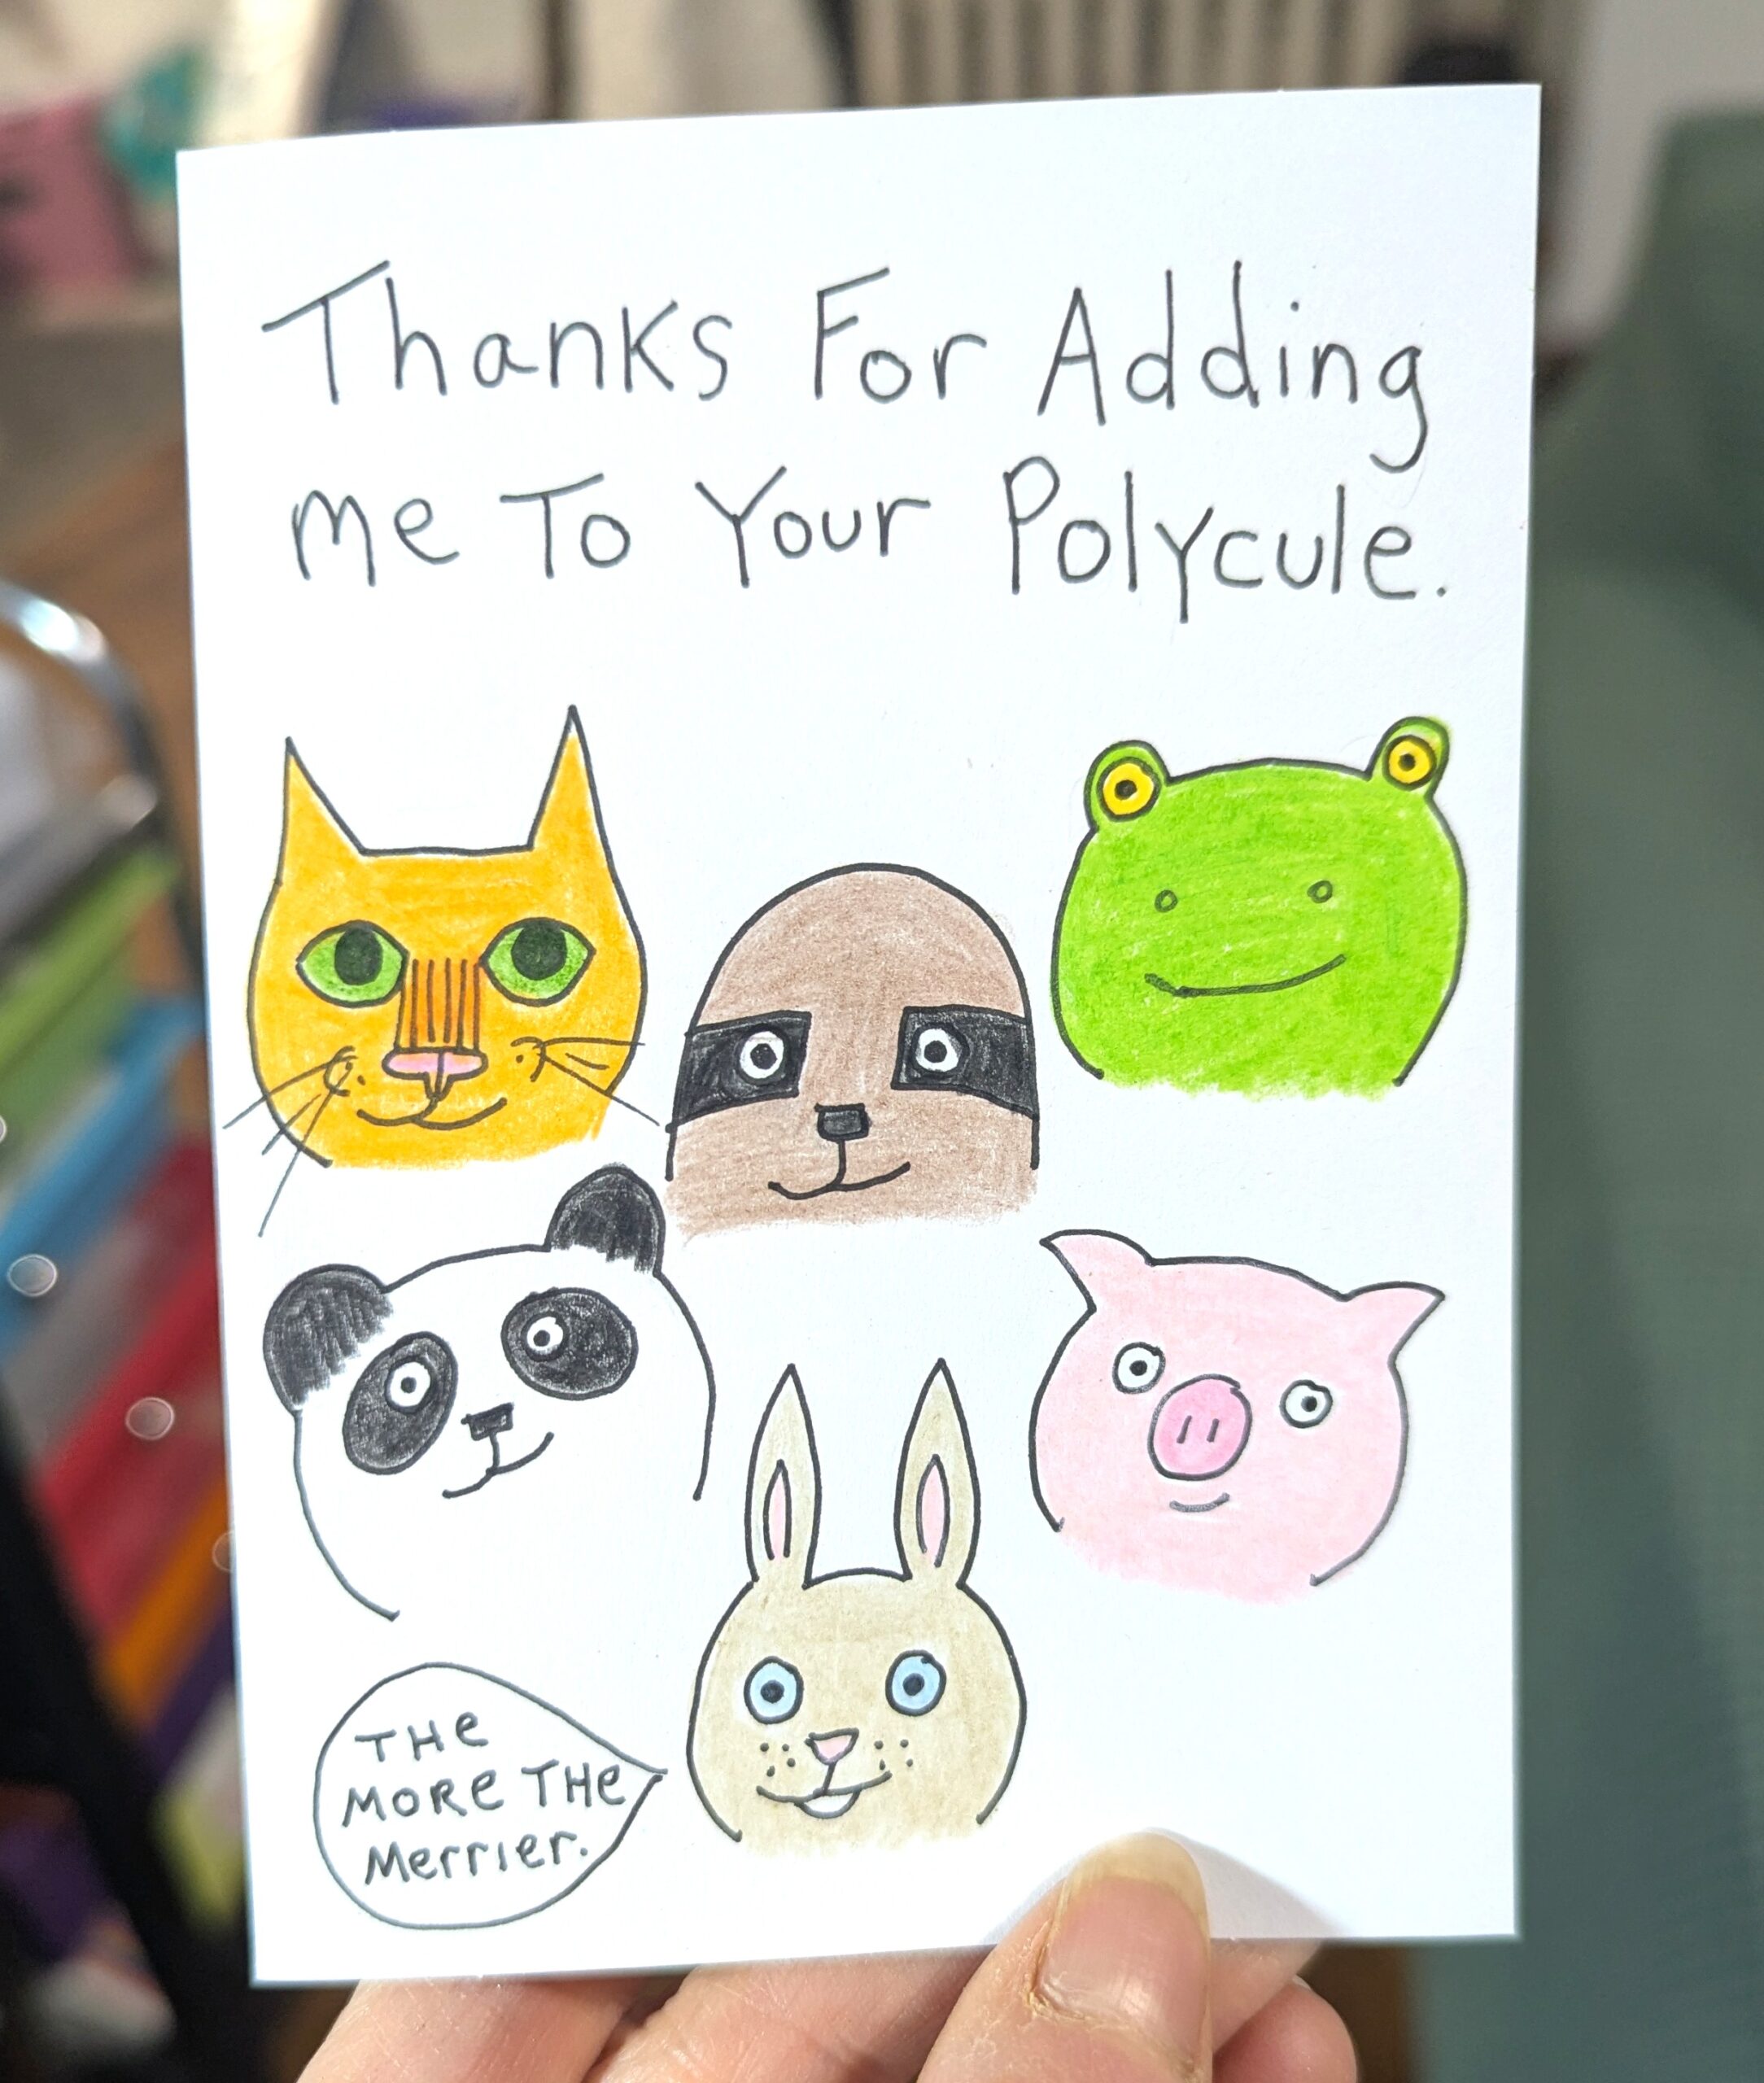 Thanks For Adding
Me To Your Polycule.
THe
MORe THe
Merrier.